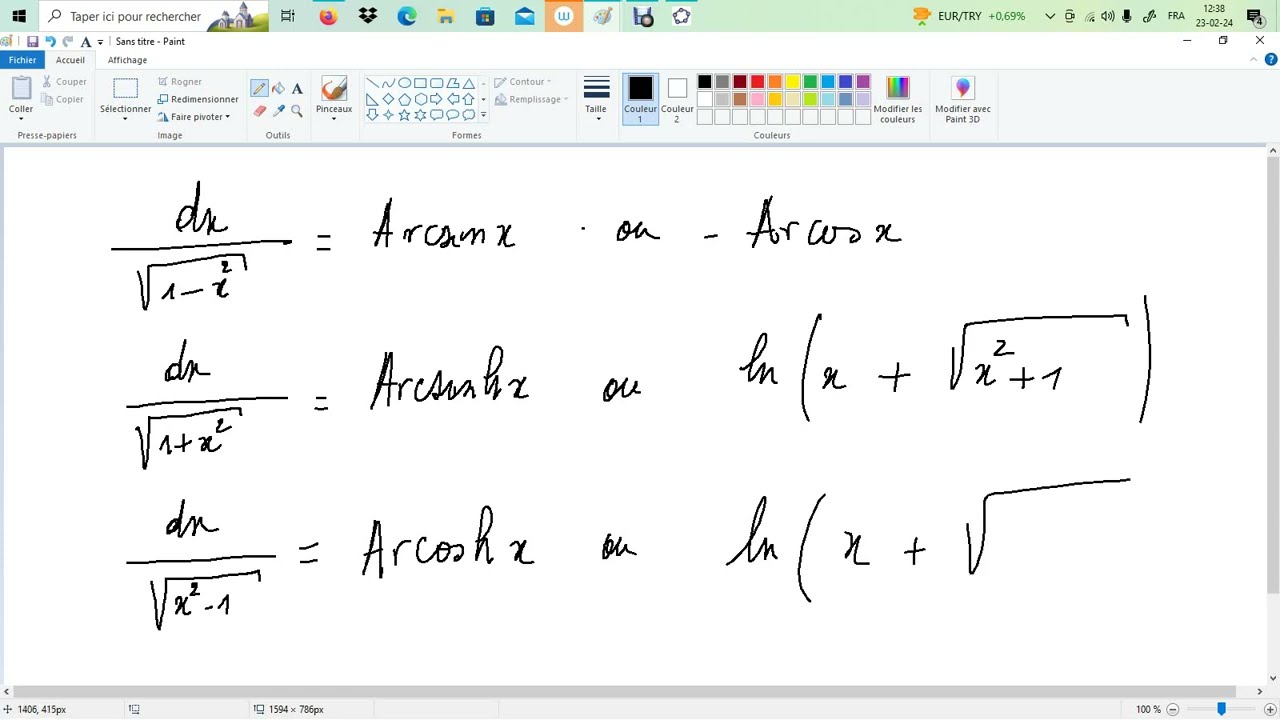 Taper ici pour rechercher
EUR/TRY +0,69%
FRA
12:38
23-02-24
4
Sans titre - Paint
Fichier Accueil Affichage
Coller
Couper
Copier
Presse-papiers
Sélectionner
Rogner
Redimensionner
Faire pivoter
Image
A
Outils
Pinceaux
Contour
Remplissage
Formes
Taille
Couleur 1
Couleur 2
Modifier les couleurs
Couleurs
Modifier avec Paint 3D
dx / √(1 - x²) = Arcsin x . ou - Arcos x
dx / √(1 + x²) = Arcsinh x ou ln(x + √(x² + 1))
dx / √(x² - 1) = Arcosh x ou ln(x + √
1406, 415px
1594 × 786px
100 %